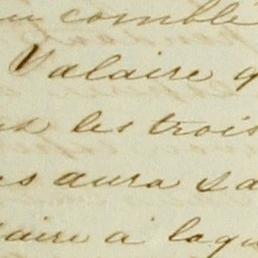 comblé
Valaire q
les trois
aura sa
aire à laqu